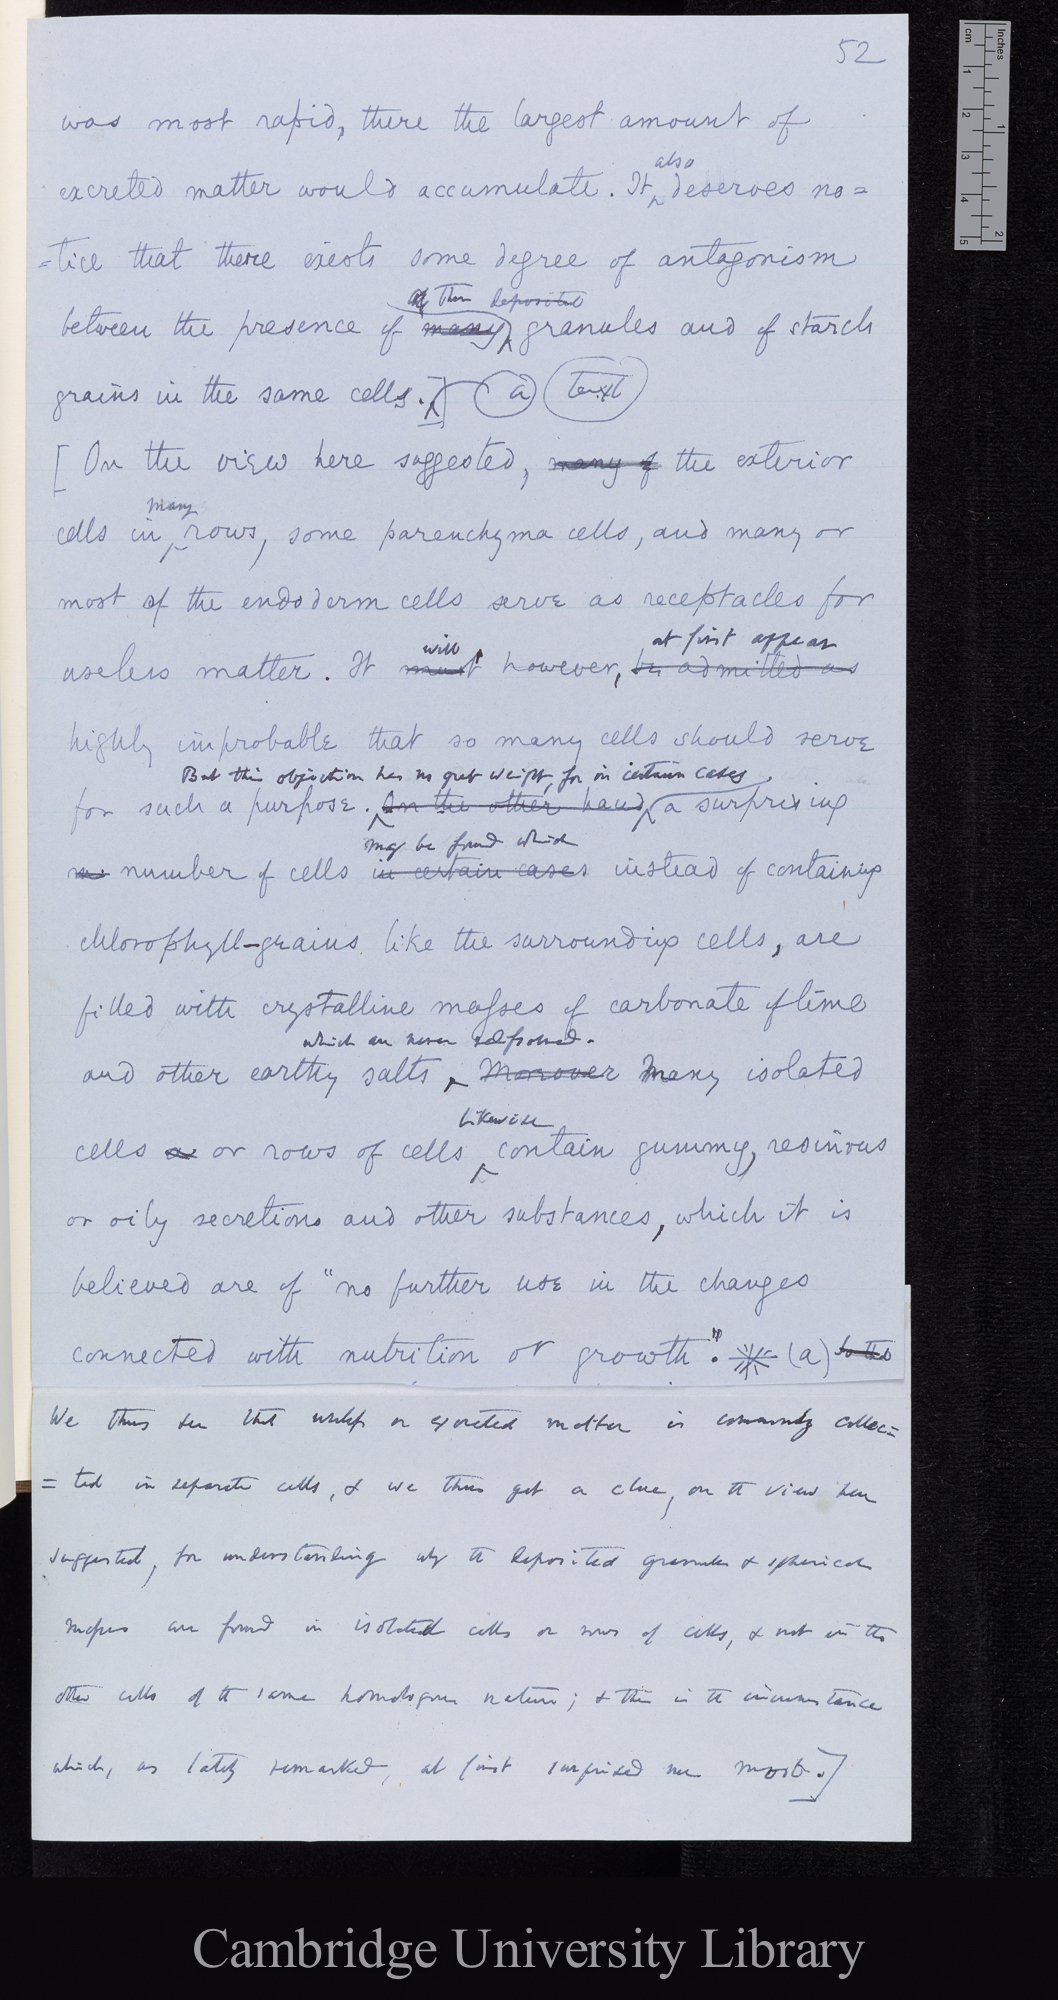 52
was most rapid, there the largest amount of
also
excreted matter would accumulate. It deserves no=
=tice that there exists some degree of antagonism
of the deposited
between the presence of many granules and of starch
grains in the same cells.] (a) text
[On the view here suggested, many of the exterior
many
cells in rows, some parenchyma cells, and many or
most of the endoderm cells serve as receptacles for
will at first appear
useless matter. It must however, be admitted as
highly improbable that so many cells should serve
But this objection has no great weight, for in certain cases
for such a purpose. On the other hand, a surprising
may be found which
number of cells in certain cases instead of containing
chlorophyll-grains like the surrounding cells, are
filled with crystalline masses of carbonate of lime
which are never redissolved.
and other earthy salts, Moreover Many isolated
likewise
cells or rows of cells contain gummy, resinous
or oily secretions and other substances, which it is
believed are of "no further use in the changes
connected with nutrition or growth". (a) to the
We thus see that useless or excreted matter is commonly collec=
=ted in separate cells, & we thus get a clue, on the view here
suggested, for understanding why the deposited granules & spherical
masses are found in isolated cells or rows of cells, & not in the
other cells of the same homologous nature; & this is the circumstance
which, as lately remarked, at first surprised me most.]
Inches
cm
1
2
3
4
5
1
2
Cambridge University Library